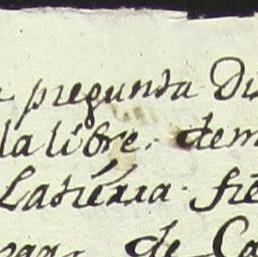 pregunta Di
la libre. dem
La tierra. fie
de Ca